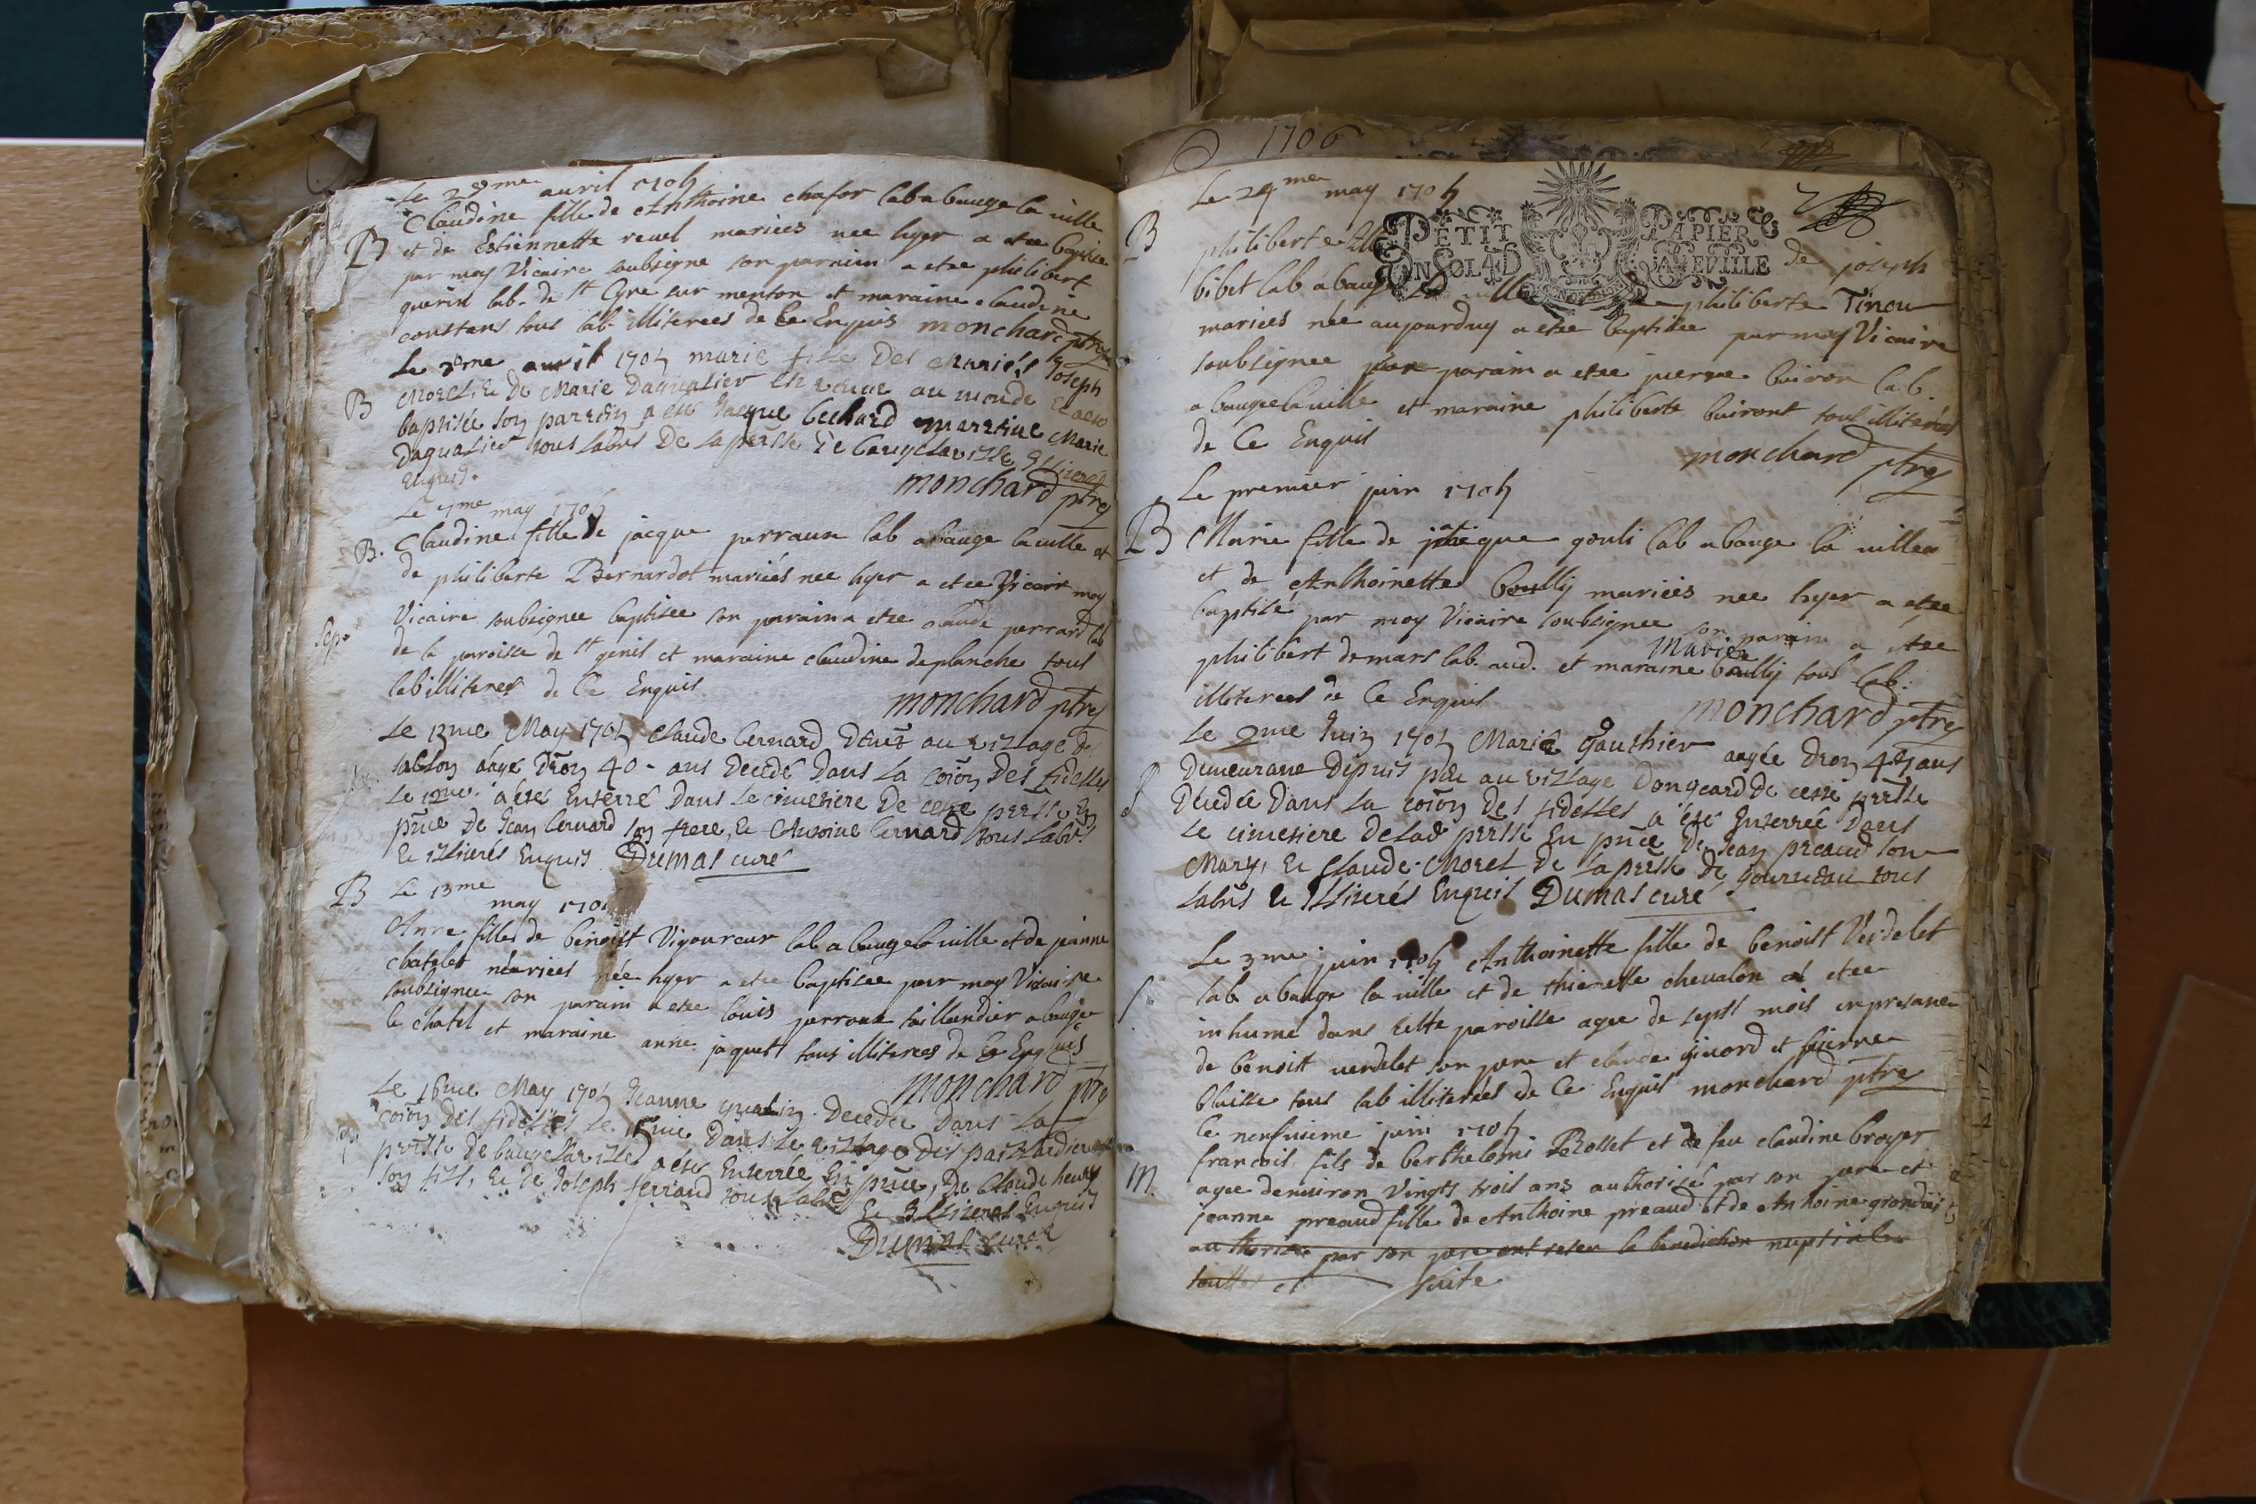 Le 2 avril 1705
B Claudine fille de Anthoine chafor lab a bauge la ville
et de Estiennette revel mariées nee hyer a etee baptise
par moy Vicaire soubsigne son parrain a etee philibert
guerin lab. de st Cyre sur menton et maraine claudine
constans tous lab. illiterees de Ce Enquis monchard ptre
Le avril 1705 marie fille des Mariés Joseph
B Morel, & De Marie Dagnalier au monde
baptisée son parrein a été Jacque bechard marreine Marie
Dagnalier tous labrs De la persse De baugelaville Illiterés
Enquis.
monchard ptre
Le may 1705
B. Claudine fille de jacque perraux lab a bauge la ville et
de philiberte Bernardot mariées nee hyer a etee moy
Vicaire soubsignee baptisee son parain a etee claude perrard lab
Sep.
de la paroisse de st genis et maraine claudine deplanche tous
lab illiterees de Ce Enquis
monchard ptre
Le 12me May 1705 Claude bernard au village de
sablon aagé 40 ans Decedé Dans La coïon Des fidelles
Le a été Enterré Dans Le cimetiere De cette persse En
pnce De Jean bernard son frere, & Antoine bernard tous Labrs
& illiterés Enquis Dumas curé
B Le 13me may 1705
Anne fille de benoist Vigoureux lab a bauge la ville et de jeanne
chatelet mariees née hyer a etee baptisee par moy Vicaire
soubsignee son parain a etee louis perroux taillandier a bauge
le chatel et maraine anne jaquet tous illiterees de Ce Enquis
monchard ptre
Le 16me May 1705 Jeanne Decedée Dans La
coïon Des fidelles Le Dans Le village Des
persse De baugelaville a été Enterrée En pnce, De Claude
son fils, & De Joseph ferrand tous Labrs
& Illiterés Enquis
Dumas curé
1706
Le 24me may 1705
2
PETIT PAPIER
UN SOL 4D LA FEUILLE
B philiberte fille de joseph
bibet lab a bauge la ville philiberte Tinou
mariees née aujourduy a etee baptisee par moy Vicaire
soubsignee parain a etee pierre buiron lab.
a bauge la ville et maraine philiberte buiront tous illiterées
de Ce Enquis
monchard ptre
Le premier juin 1705
B Marie fille de jacque gouli lab a bauge la ville
et de Anthoinette boully mariees nee hyer a etee
baptise par moy Vicaire soubsignee son parain a etee
philibert demars lab. aud. et maraine Marie boully tous lab.
illiterees de Ce Enquis
monchard ptre
Le 2me Juin 1705 Marie Gauthier aagée 45 ans
Demeurane Depuis peu au village Dongeard De cette persse
S Decedée Dans La coïon Des fidelles a été Enterrée Dans
Le cimetiere De lad persse En pnce De Jean preaud son
Mary, & Claude Morel De La persse De gourrdau tous
Labrs & Illiterés Enquis Dumas curé
Le 3me juin 1705 Anthoinette fille de benoist Verdelet
lab a bauge la ville et de thienette chevalon a etee
S inhume dans cette paroisse agee de sept mois en presance
de benoist verdelet son pere et claude givord et pierre
blaisse tous lab illiterées de Ce Enquis monchard ptre
Ce neufvieme juin 1705
francois fils de berthelemi Rollet et de feu claudine broyer
m. agee denviron Vingts trois ans authorisé par son pere et
jeanne preaud fille de Anthoine preaud et de Anthoine grandjei
authorisée par son pere ont reseu la benediction nuptiale
et suite